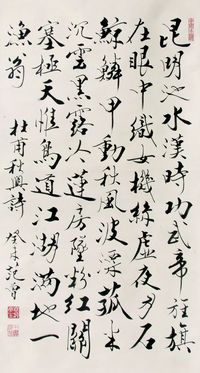 昆明池水漢時功武帝旌旗
在眼中織女機絲虛夜月石
鯨鱗甲動秋風波漂菰米
沉雲黑露冷蓮房墜粉紅關
塞極天惟鳥道江湖滿地一
漁翁
杜甫秋興詩